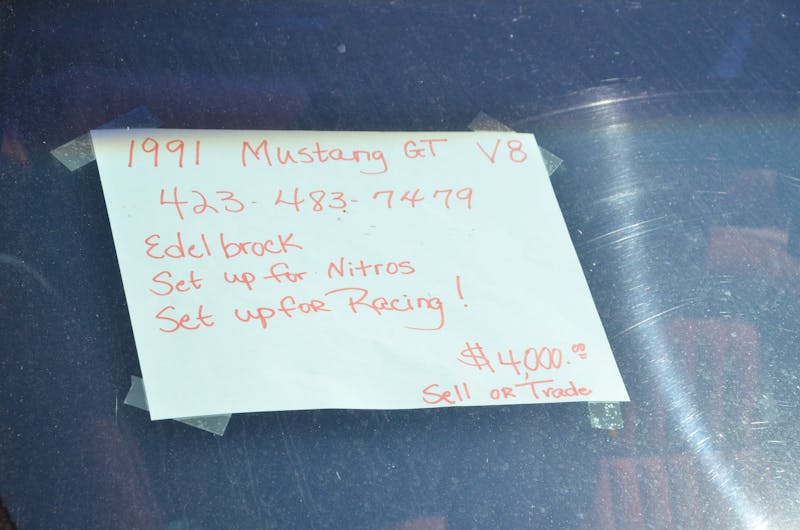 1991 Mustang GT V8
423-483-7479
Edelbrock
Set up for Nitros
Set up for Racing!
$4,000.00
Sell or Trade